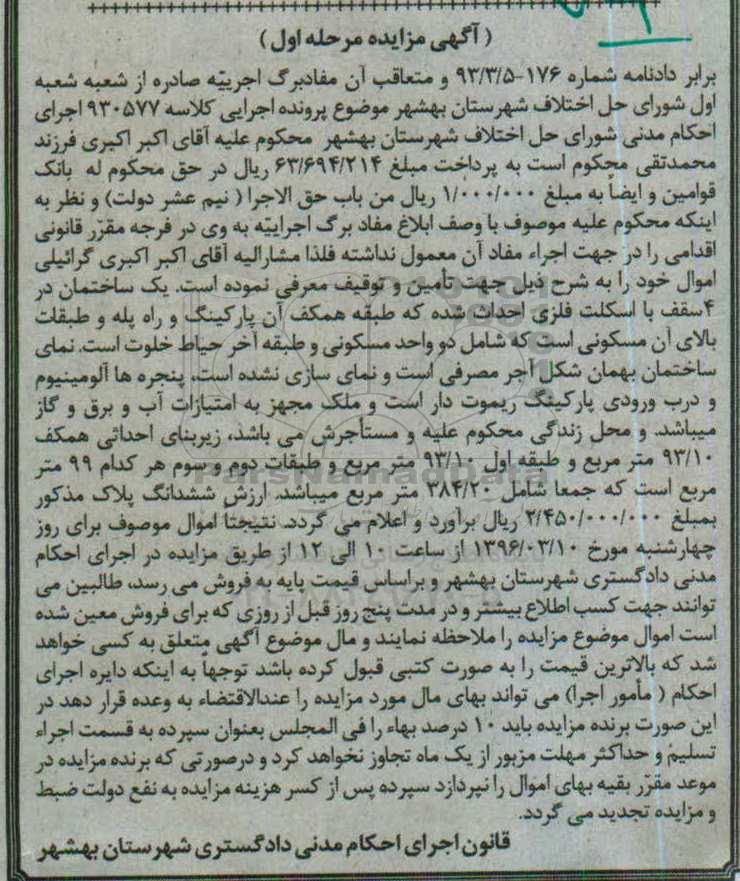 ( آگهی مزایده مرحله اول )
برابر دادنامه شماره ۱۷۶-۹۳/۳/۵ و متعاقب آن مفادبرگ اجرییّه صادره از شعبه شعبه
اول شورای حل اختلاف شهرستان بهشهر موضوع پرونده اجرایی کلاسه ۹۳۰۵۷۷ اجرای
احکام مدنی شورای حل اختلاف شهرستان بهشهر محکوم علیه آقای اکبر اکبری فرزند
محمدتقی محکوم است به پرداخت مبلغ ۶۳/۶۹۴/۲۱۴ ریال در حق محکوم له بانک
قوامین و ایضاً به مبلغ ۱/۰۰۰/۰۰۰ ریال من باب حق الاجرا ( نیم عشر دولت) و نظر به
اینکه محکوم علیه موصوف با وصف ابلاغ مفاد برگ اجراییّه به وی در فرجه مقرّر قانونی
اقدامی را در جهت اجراء مفاد آن معمول نداشته فلذا مشارالیه آقای اکبر اکبری گرائیلی
اموال خود را به شرح ذیل جهت تأمین و توقیف معرفی نموده است. یک ساختمان در
۴سقف با اسکلت فلزی احداث شده که طبقه همکف آن پارکینگ و راه پله و طبقات
بالای آن مسکونی است که شامل دو واحد مسکونی و طبقه آخر حیاط خلوت است. نمای
ساختمان بهمان شکل آجر مصرفی است و نمای سازی نشده است، پنجره ها آلومینیوم
و درب ورودی پارکینگ ریموت دار است و ملک مجهز به امتیازات آب و برق و گاز
میباشد. و محل زندگی محکوم علیه و مستأجرش می باشد، زیربنای احداثی همکف
۹۳/۱۰ متر مربع و طبقه اول ۹۳/۱۰ متر مربع و طبقات دوم و سوم هر کدام ۹۹ متر
مربع است که جمعا شامل ۳۸۴/۲۰ متر مربع میباشد. ارزش ششدانگ پلاک مذکور
بمبلغ ۲/۴۵۰/۰۰۰/۰۰۰ ریال برآورد و اعلام می گردد. نتیجتاً اموال موصوف برای روز
چهارشنبه مورخ ۱۳۹۶/۰۳/۱۰ از ساعت ۱۰ الی ۱۲ از طریق مزایده در اجرای احکام
مدنی دادگستری شهرستان بهشهر و براساس قیمت پایه به فروش می رسد، طالبین می
توانند جهت کسب اطلاع بیشتر و در مدت پنج روز قبل از روزی که برای فروش معین شده
است اموال موضوع مزایده را ملاحظه نمایند و مال موضوع آگهی متعلق به کسی خواهد
شد که بالاترین قیمت را به صورت کتبی قبول کرده باشد توجهاً به اینکه دایره اجرای
احکام ( مأمور اجرا) می تواند بهای مال مورد مزایده را عندالاقتضاء به وعده قرار دهد در
این صورت برنده مزایده باید ۱۰ درصد بهاء را فی المجلس بعنوان سپرده به قسمت اجراء
تسلیم و حداکثر مهلت مزبور از یک ماه تجاوز نخواهد کرد و درصورتی که برنده مزایده در
موعد مقرّر بقیه بهای اموال را نپردازد سپرده پس از کسر هزینه مزایده به نفع دولت ضبط
و مزایده تجدید می گردد.
قانون اجرای احکام مدنی دادگستری شهرستان بهشهر
ParsNamadData